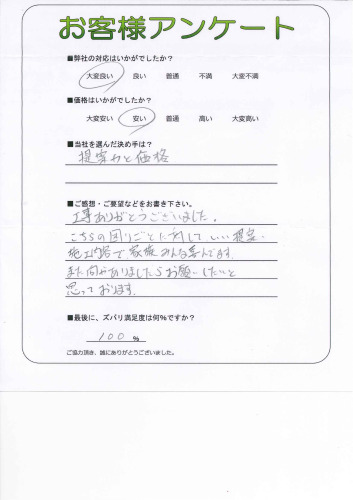 お客様アンケート
■弊社の対応はいかがでしたか？
大変良い 良い 普通 不満 大変不満
■価格はいかがでしたか？
大変安い 安い 普通 高い 大変高い
■当社を選んだ決め手は？
提案力と価格
■ご感想・ご要望などをお書き下さい。
工事ありがとうございました。
こちらの困りごとに対して、いい提案、
施工内容で家族みんな喜んでます。
また何かありましたらお願いしたいと
思っております。
■最後に、ズバリ満足度は何％ですか？
100 %
ご協力頂き、誠にありがとうございました。